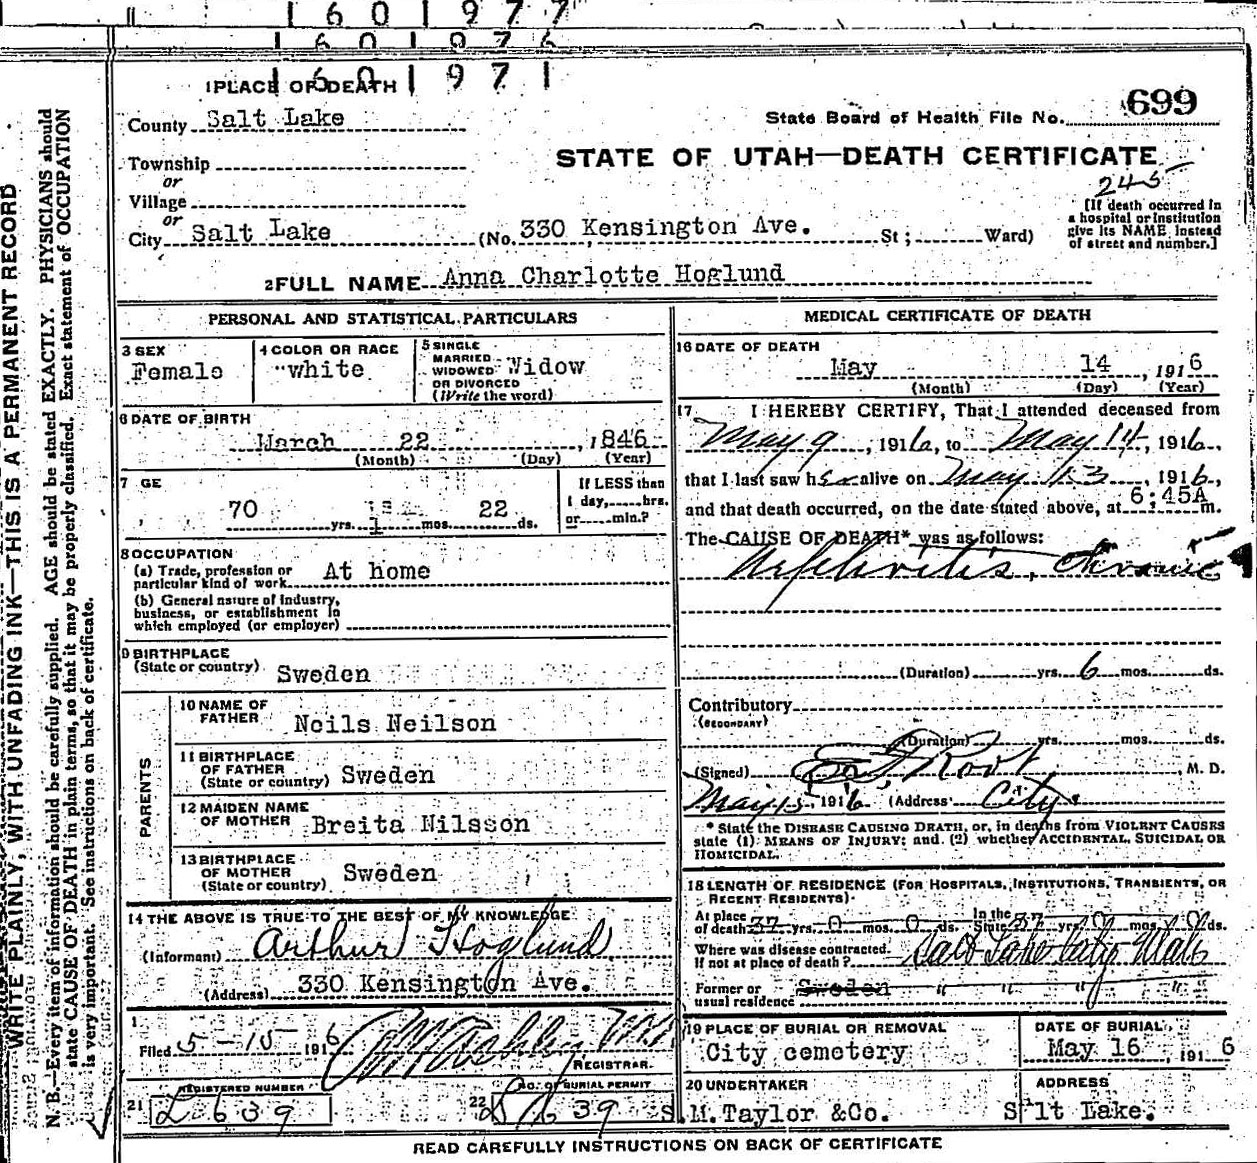 1 6 0 1 9 7 7
1 6 0 1 9 7 6
1 6 0 1 9 7 1
1 PLACE OF DEATH
County Salt Lake
State Board of Health File No. 699
Township
STATE OF UTAH—DEATH CERTIFICATE
or
245
Village
or
City Salt Lake (No. 330 Kensington Ave. St; Ward)
[If death occurred in
a hospital or institution
give its NAME instead
of street and number.]
2 FULL NAME Anna Charlotte Hoglund
PERSONAL AND STATISTICAL PARTICULARS
3 SEX
Female
4 COLOR OR RACE
"white
5 SINGLE
MARRIED
WIDOWED
OR DIVORCED
(Write the word)
Widow
6 DATE OF BIRTH
March 22, 1846
(Month) (Day) (Year)
7 GE
70 yrs. 1 mos. 22 ds.
If LESS than
1 day, hrs.
or min.?
8 OCCUPATION
(a) Trade, profession or
particular kind of work At home
(b) General nature of industry,
business, or establishment in
which employed (or employer)
9 BIRTHPLACE
(State or country) Sweden
PARENTS
10 NAME OF
FATHER Neils Neilson
11 BIRTHPLACE
OF FATHER
(State or country) Sweden
12 MAIDEN NAME
OF MOTHER Breita Nilsson
13 BIRTHPLACE
OF MOTHER
(State or country) Sweden
14 THE ABOVE IS TRUE TO THE BEST OF MY KNOWLEDGE
(Informant) Arthur Hoglund
(Address) 330 Kensington Ave.
Filed 5-15 1916
REGISTRAR.
REGISTERED NUMBER
21 L 639
No. of BURIAL PERMIT
22 639
MEDICAL CERTIFICATE OF DEATH
16 DATE OF DEATH
May 14, 1916
(Month) (Day) (Year)
17 I HEREBY CERTIFY, That I attended deceased from
May 9, 1916, to May 14, 1916,
that I last saw her alive on May 13, 1916,
and that death occurred, on the date stated above, at 6:45A m.
The CAUSE OF DEATH* was as follows:
Nephritis, Chronic
(Duration) yrs. 6 mos. ds.
Contributory
(SECONDARY)
(Duration) yrs. mos. ds.
(Signed) Root, M. D.
May 15, 1916 (Address) City.
* State the DISEASE CAUSING DEATH, or, in deaths from VIOLENT CAUSES
state (1) MEANS OF INJURY; and (2) whether ACCIDENTAL, SUICIDAL OR
HOMICIDAL.
18 LENGTH OF RESIDENCE (FOR HOSPITALS, INSTITUTIONS, TRANSIENTS, OR
RECENT RESIDENTS).
At place
of death 37 yrs. 0 mos. 0 ds. In the State 37 yrs. 0 mos. 0 ds.
Where was disease contracted
If not at place of death? Salt Lake City Utah
Former or
usual residence Sweden " " " "
19 PLACE OF BURIAL OR REMOVAL
City cemetery
DATE OF BURIAL
May 16, 1916
20 UNDERTAKER
S.M.Taylor &Co.
ADDRESS
S lt Lake.
READ CAREFULLY INSTRUCTIONS ON BACK OF CERTIFICATE
WRITE PLAINLY, WITH UNFADING INK—THIS IS A PERMANENT RECORD
N. B.—Every item of information should be carefully supplied. AGE should be stated EXACTLY. PHYSICIANS should
state CAUSE OF DEATH in plain terms, so that it may be properly classified. Exact statement of OCCUPATION
is very important. See instructions on back of certificate.